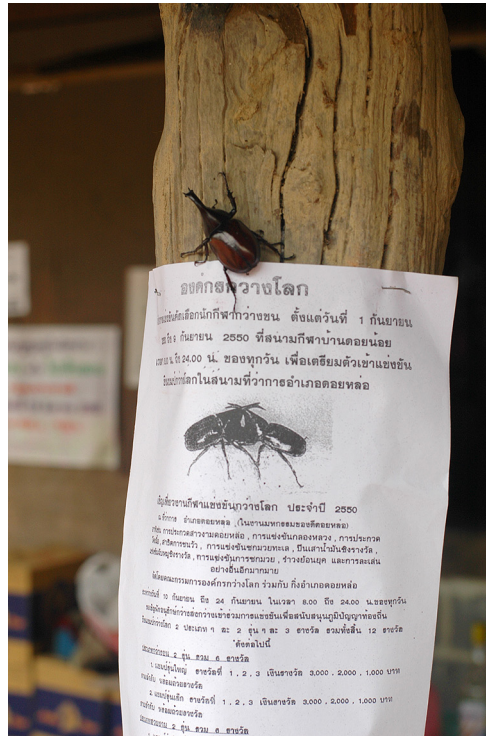 องค์กรกว่างโลก
แข่งขันคัดเลือกนักกีฬากว่างชน ตั้งแต่วันที่ 1 กันยายน
ถึง 9 กันยายน 2550 ที่สนามกีฬาบ้านดอยน้อย
น. ถึง 24.00 น. ของทุกวัน เพื่อเตรียมตัวเข้าแข่งขัน
ชิงแชมป์กว่างโลกในสนามที่ว่าการอำเภอดอยหล่อ
เชิญเที่ยวงานกีฬาแข่งขันกว่างโลก ประจำปี 2550
ณ ที่ว่าการ อำเภอดอยหล่อ (ในงานมหกรรมของดีดอยหล่อ)
การประกวดสาวงามดอยหล่อ , การแข่งขันกลองหลวง , การประกวด
, สาธิตการชนวัว , การแข่งขันชกมวยทะเล , ปีนเสาน้ำมันชิงรางวัล ,
, การแข่งขันการชกมวย , รำวงย้อนยุค และการละเล่น
อย่างอื่นอีกมากมาย
จัดโดยคณะกรรมการองค์กรกว่างโลก ร่วมกับ กิ่งอำเภอดอยหล่อ
วันที่ 10 กันยายน ถึง 24 กันยายน ในเวลา 8.00 ถึง 24.00 น.ของทุกวัน
ขอเชิญนักอนุรักษ์กว่างส่งกว่างเข้าร่วมการแข่งขันเพื่อสนับสนุนภูมิปัญญาท้องถิ่น
โลก 2 ประเภท ๆ ละ 2 รุ่น ๆ ละ 3 รางวัล รวมทั้งสิ้น 12 รางวัล
ดังต่อไปนี้
2 รุ่น รวม 6 รางวัล
1. แชมป์รุ่นใหญ่ รางวัลที่ 1 , 2 , 3 เงินรางวัล 3,000 , 2,000 , 1,000 บาท
ตามลำดับ พร้อมถ้วยรางวัล
2. แชมป์รุ่นเล็ก รางวัลที่ 1 , 2 , 3 เงินรางวัล 3,000 , 2,000 , 1,000 บาท
ตามลำดับ พร้อมถ้วยรางวัล
2 รุ่น รวม 6 รางวัล